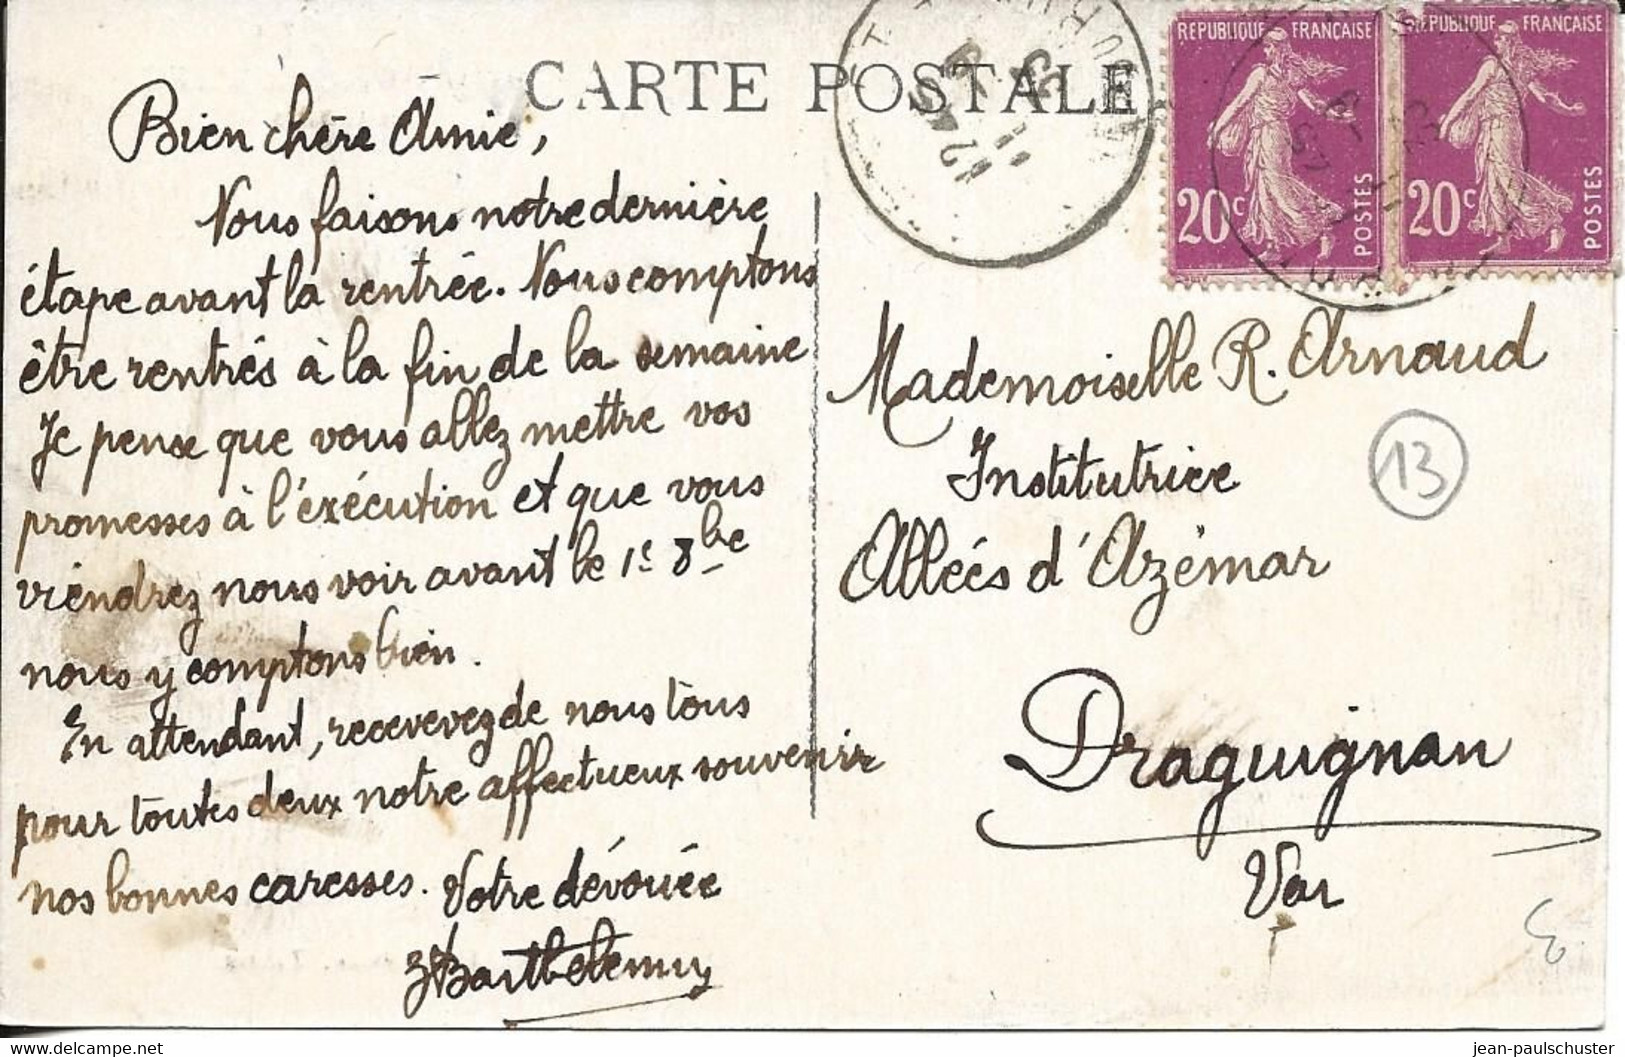 CARTE POSTALE
RÉPUBLIQUE FRANÇAISE
20c
POSTES
RÉPUBLIQUE FRANÇAISE
20c
POSTES
Bien chère Amie,
Nous faisons notre dernière
étape avant la rentrée. Nous comptons
être rentrés à la fin de la semaine
Je pense que vous allez mettre vos
promesses à l'exécution et que vous
viendrez nous voir avant le 1e 8bre
nous y comptons bien.
En attendant, recevevez de nous tous
pour toutes deux notre affectueux souvenir
nos bonnes caresses. Votre dévouée
Barthelemy
Mademoiselle R. Arnaud
Institutrice
Allées d'Azémar
Draguignan
Var
13
jean-paulschuster